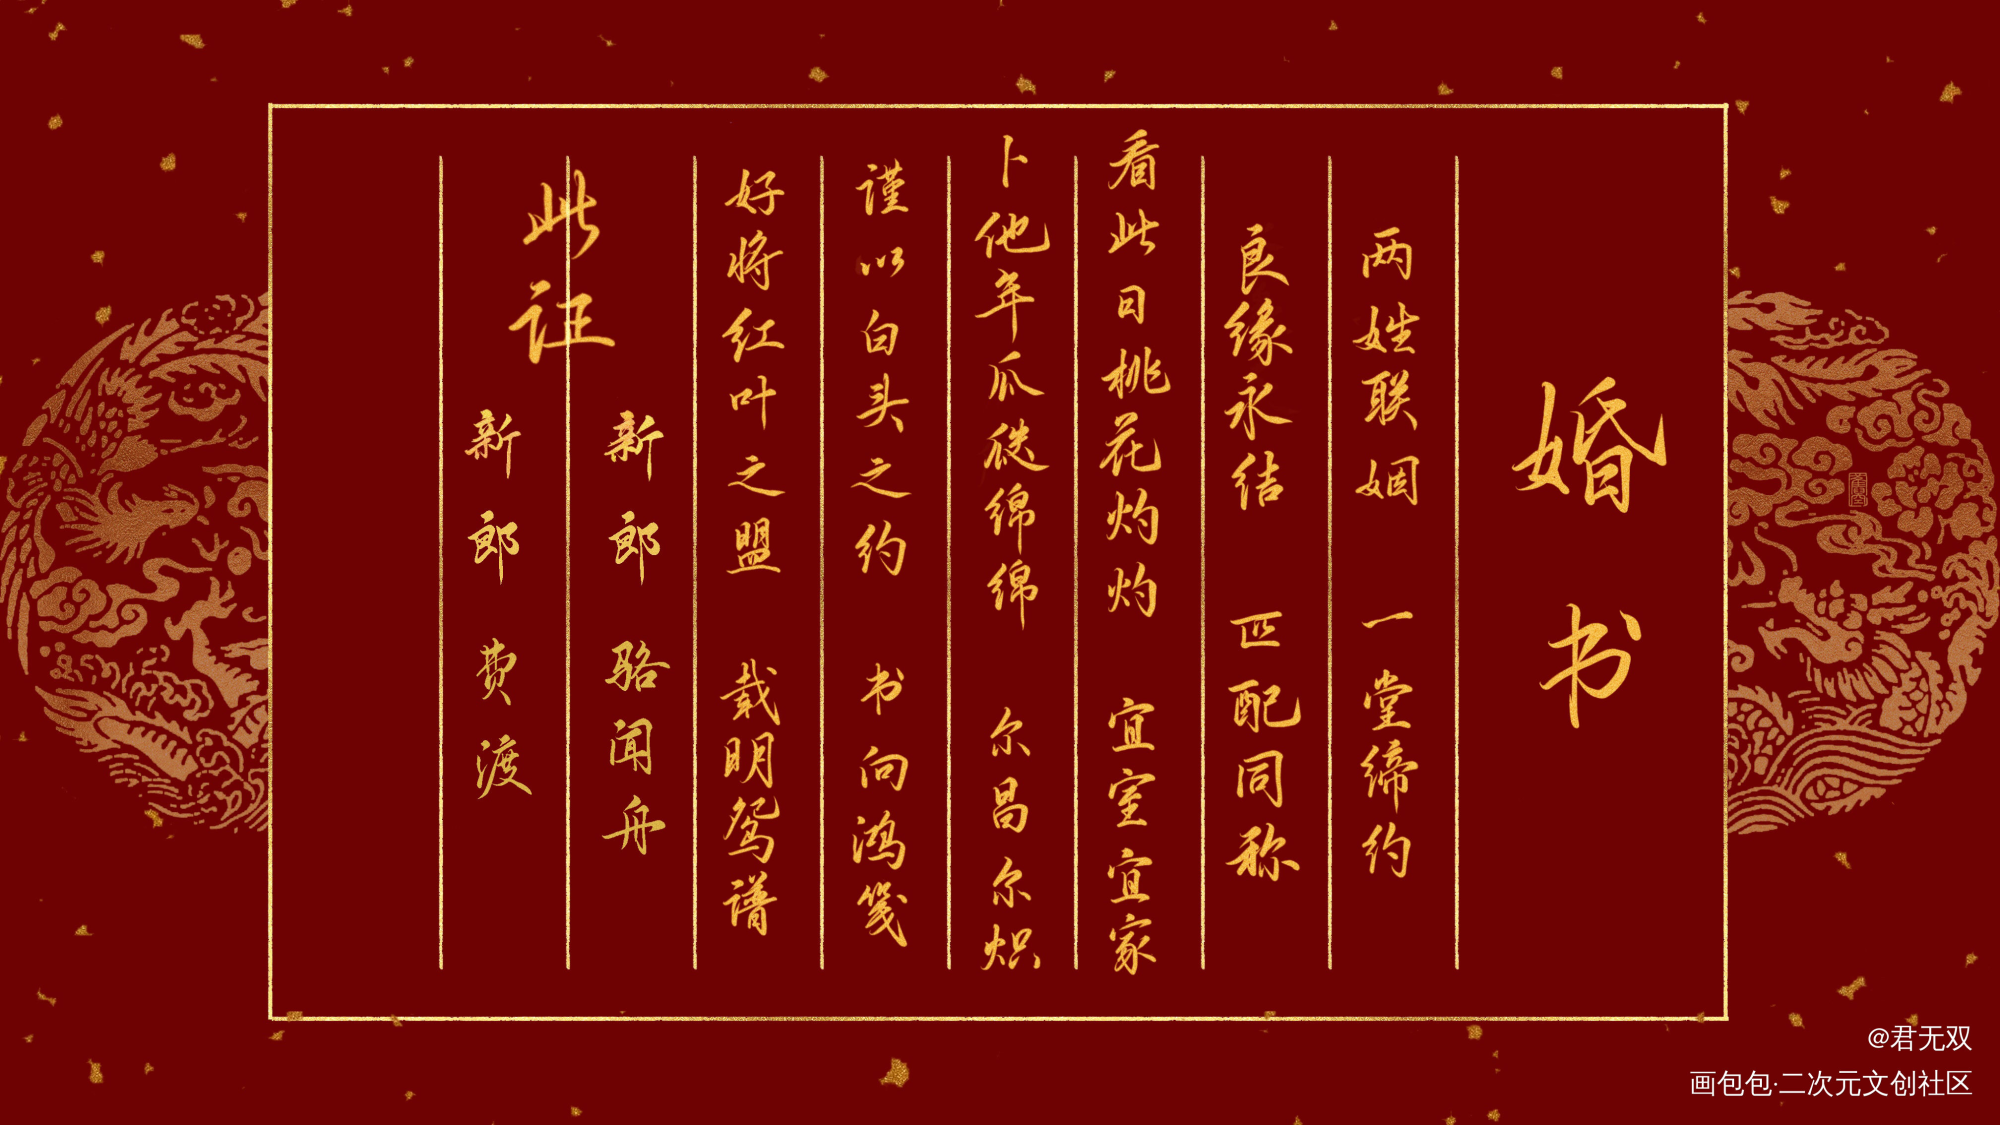 婚书
两姓联姻 一堂缔约
良缘永结 匹配同称
看此日桃花灼灼 宜室宜家
卜他年瓜瓞绵绵 尔昌尔炽
谨以白头之约 书向鸿笺
好将红叶之盟 载明鸳谱
此证
新郎 骆闻舟
新郎 费渡
@君无双
画包包·二次元文创社区